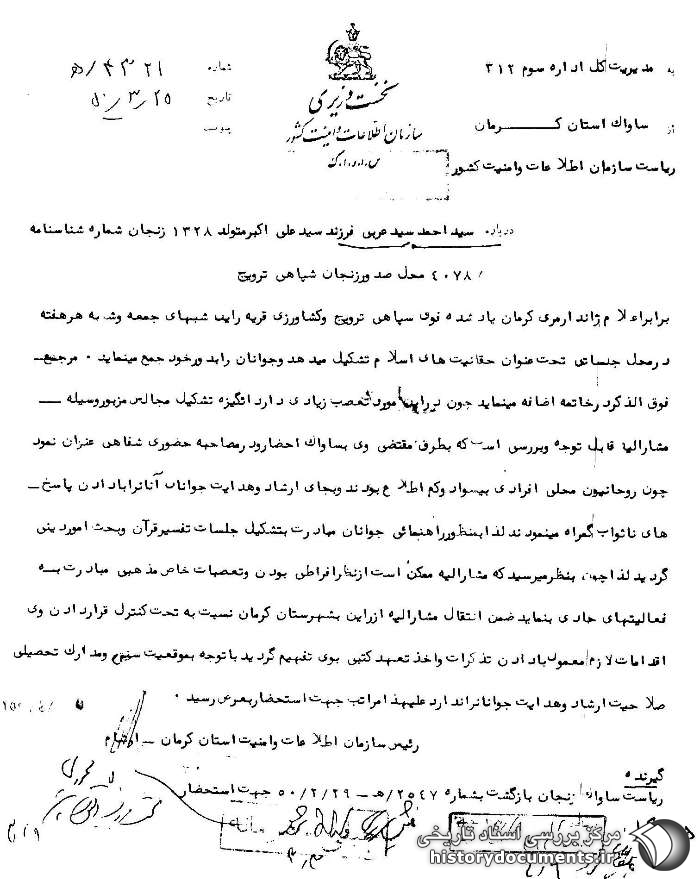 به مدیریت کل اداره سوم ۳۱۲
شماره ۴۳۲۱/ه‍
نخست وزیری
تاریخ ۵۰/۳/۲۵
از ساواک استان کرمان
سازمان اطلاعات و امنیت کشور
پیوست
س.ا.و.ا.ک
ریاست سازمان اطلاعات وامنیت کشور
درباره سید احمد سید عربی فرزند سید علی اکبر متولد ۱۳۲۸ زنجان شماره شناسنامه
/ ۴۰۷۸ محل صدور زنجان شپاهی ترویج
برابر اعلام ژاندارمری کرمان یاد شده فوق سپاهی ترویج وکشاورزی قریه راین شبهای جمعه وشنبه هرهفته
درمحل جلساتی تحت عنوان حقانیت های اسلام تشکیل میدهد وجوانان رابدورخود جمع مینماید . مرجمع
فوق الذکر درخاتمه اضافه مینماید چون دراین مورد تعصب زیادی دارد انگیزه تشکیل مجالس مزبور وسیله
مشارالیه قابل توجه وبررسی است که بطرق مقتضی وی بساواک احضار ودرمصاحبه حضوری شفاهی عنوان نمود
چون روحانیون محلی افرادی بیسواد وکم اطلاع بودند وبجای ارشاد وهدایت جوانان آنانرا بادادن پاسخ
های ناثواب گمراه مینمودند لذا بمنظور راهنمائی جوانان مبادرت بتشکیل جلسات تفسیرقرآن وبحث اموردینی
گردید لذا چون بنظر میرسید که مشارالیه ممکن است ازنظر افراطی بودن وتعصبات خاص مذهبی مبادرت به
فعالیتهای حادی بنماید ضمن انتقال مشارالیه ازراین بشهرستان کرمان نسبت به تحت کنترل قراردادن وی
اقدامات لازم معمول بادادن تذکرات واخذ تعهد کتبی بوی تفهیم گردید باتوجه بموقعیت سنی ومدارک تحصیلی
صلاحیت ارشاد وهدایت جوانانرا ندارد علیهذا مراتب جهت استحضار بعرض رسید .
رئیس سازمان اطلاعات وامنیت استان کرمان
گیرنده
ریاست ساواک زنجان بازگشت بشماره ۲۵۴۷/ه‍ - ۵۰/۲/۲۹ جهت استحضار
مرکز بررسی اسناد تاریخی
historydocuments.ir